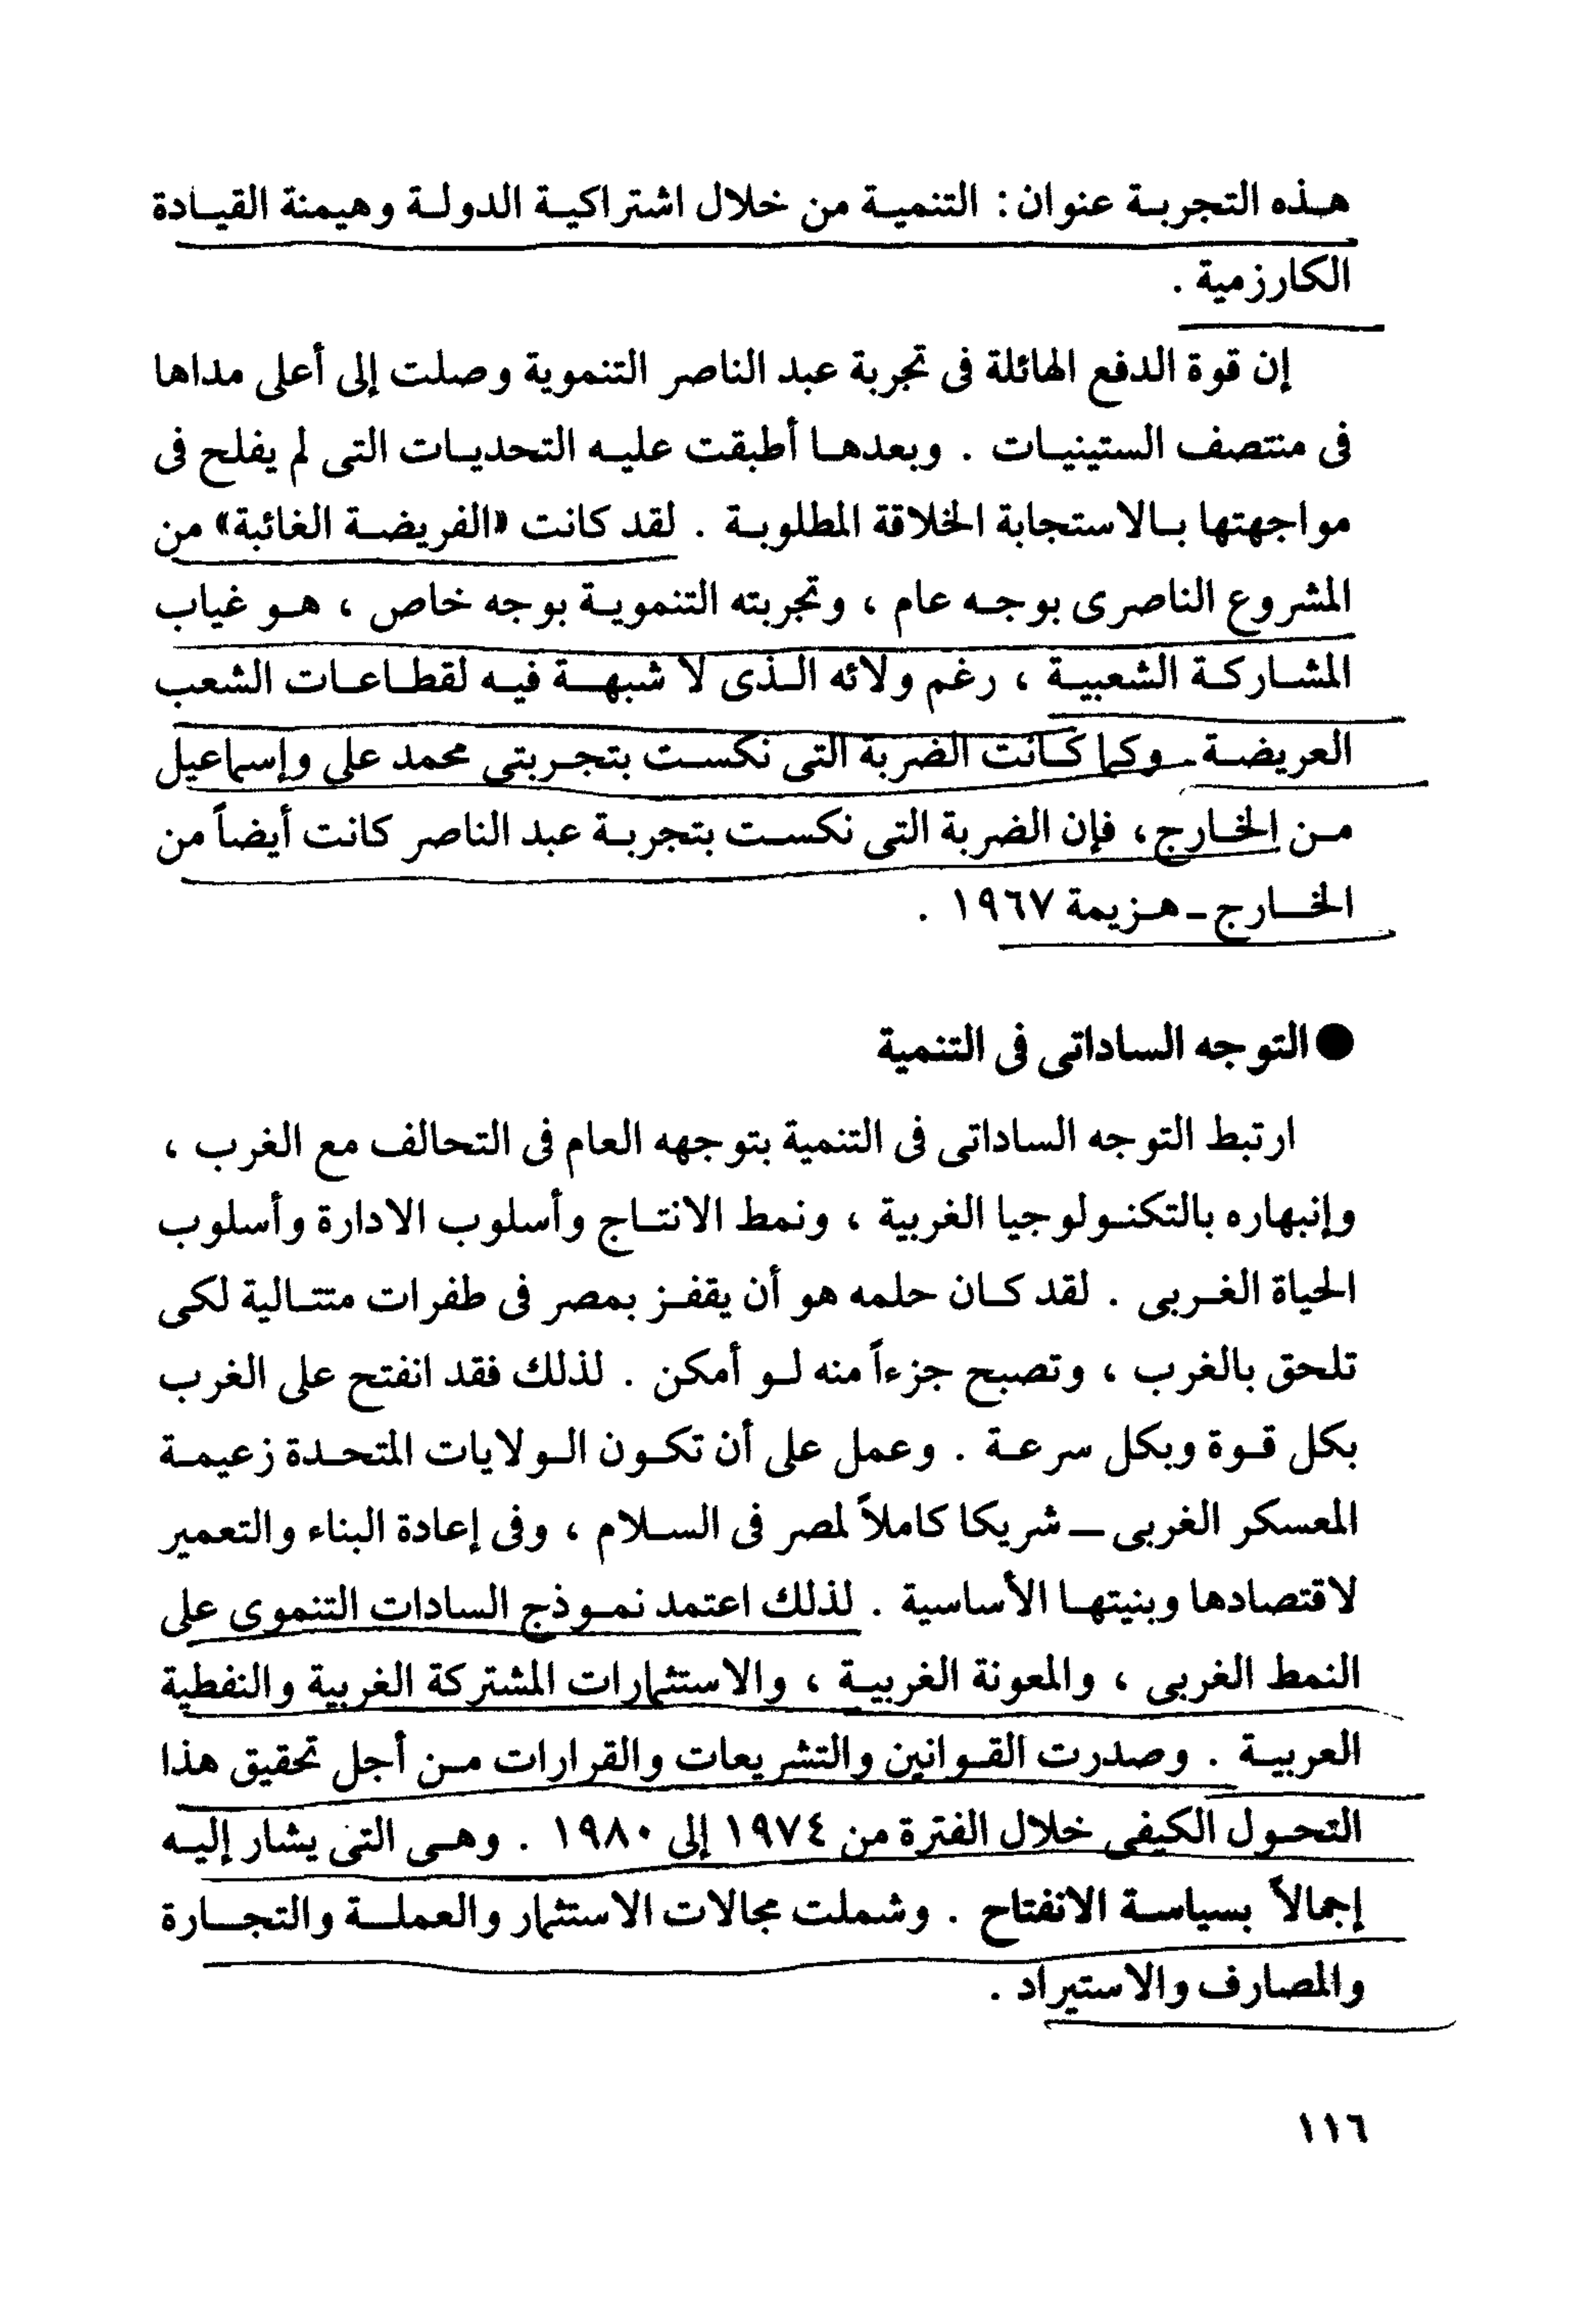 هذه التجربة عنوان : التنمية من خلال اشتراكية الدولة وهيمنة القيادة
الكارزمية .
إن قوة الدفع الهائلة فى تجربة عبد الناصر التنموية وصلت إلى أعلى مداها
فى منتصف الستينيات . وبعدها أطبقت عليه التحديات التى لم يفلح فى
مواجهتها بالاستجابة الخلاقة المطلوبة . لقد كانت «الفريضة الغائبة» من
المشروع الناصرى بوجه عام ، وتجربته التنموية بوجه خاص ، هو غياب
المشاركة الشعبية ، رغم ولائه الذى لا شبهة فيه لقطاعات الشعب
العريضة . وكما كانت الضربة التى نكست بتجربتى محمد على وإسماعيل
من الخارج ، فإن الضربة التى نكست بتجربة عبد الناصر كانت أيضاً من
الخارج - هزيمة ١٩٦٧ .
● التوجه الساداتى فى التنمية
ارتبط التوجه الساداتى فى التنمية بتوجهه العام فى التحالف مع الغرب ،
وإنبهاره بالتكنولوجيا الغربية ، ونمط الانتاج وأسلوب الادارة وأسلوب
الحياة الغربى . لقد كان حلمه هو أن يقفز بمصر فى طفرات متتالية لكى
تلحق بالغرب ، وتصبح جزءاً منه لو أمكن . لذلك فقد انفتح على الغرب
بكل قوة وبكل سرعة . وعمل على أن تكون الولايات المتحدة زعيمة
المعسكر الغربى — شريكا كاملاً لمصر فى السلام ، وفى إعادة البناء والتعمير
لاقتصادها وبنيتها الأساسية . لذلك اعتمد نموذج السادات التنموى على
النمط الغربى ، والمعونة الغربية ، والاستثمارات المشتركة الغربية والنفطية
العربية . وصدرت القوانين والتشريعات والقرارات من أجل تحقيق هذا
التحول الكيفى خلال الفترة من ١٩٧٤ إلى ١٩٨٠ . وهى التى يشار إليه
إجمالاً بسياسة الانفتاح . وشملت مجالات الاستثمار والعملة والتجارة
والمصارف والاستيراد .
١١٦